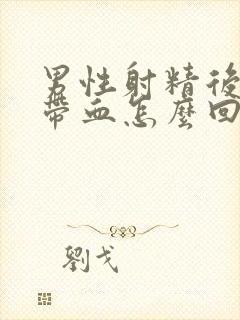 男性射精後
帶血怎麼回
劉戈